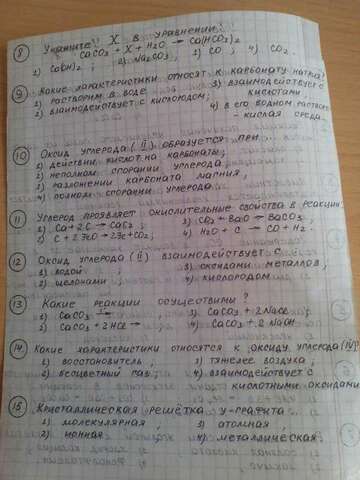 8 Укажите X в уравнении:
CaCO3 + X + H2O → Ca(HCO3)2
1) Ca(OH)2 ; 2) Na2CO3 ; 3) CO , 4) CO2 .
9 Какие характеристики относят к карбонату натрия?
1) растворим в воде 3) взаимодействует с
2) взаимодействует с кислородом; кислотами
4) в его водном растворе
- кислая среда.
10 Оксид углерода (II) образуется при ...
1) действии кислот на карбонаты;
2) неполном сгорании углерода;
3) разложении карбоната магния,
4) полном сгорании углерода
11 Углерод проявляет окислительные свойства в реакции
1) Ca + 2C → CaC2 ; 3) CO2 + BaO → BaCO3 ,
2) C + 2FeO → 2Fe + CO2 ; 4) H2O + C → CO + H2 .
12 Оксид углерода (II) взаимодействует с
1) водой , 3) оксидами металлов ,
2) щелочами , 4) кислородом
13 Какие реакции осуществимы ?
1) CaCO3 → , 3) CaCO3 + 2NaCl ,
2) CaCO3 + 2HCl → , 4) CaCO3 + 2NaOH .
14 Какие характеристики относятся к оксиду углерода (IV)?
1) восстановитель , 3) тяжелее воздуха ,
2) бесцветный газ, 4) взаимодействует с
кислотными оксидами
15 Кристаллическая решётка у графита ...
1) молекулярная , 3) атомная ,
2) ионная 4) металлическая